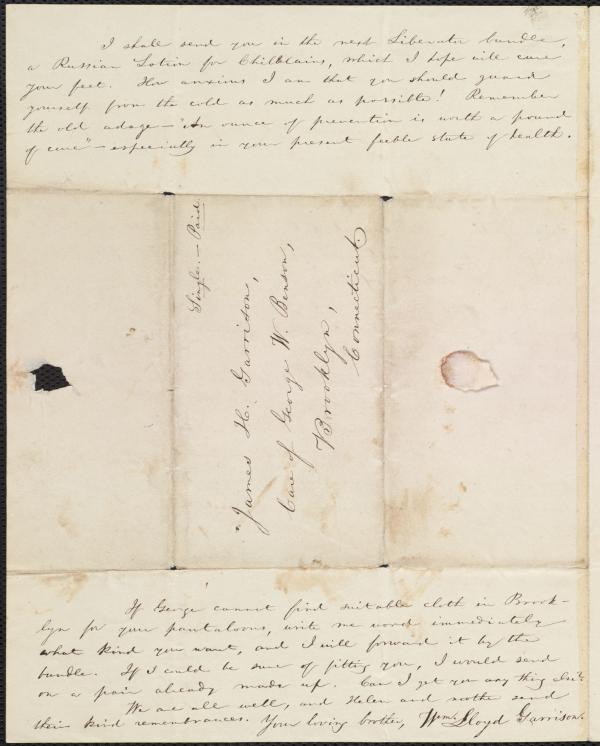 I shall send you in the next Liberator bundle,
a Russian Lotion for Chilblains, which I hope will cure
your feet. How anxious I am that you should guard
yourself from the cold as much as possible! Remember
the old adage—"An ounce of prevention is worth a pound
of cure"—especially in your present feeble state of health.
Single.—Paid
James H. Garrison,
Care of George W. Benson,
Brooklyn,
Connecticut
If George cannot find suitable cloth in Brook-
lyn for your pantaloons, write me word immediately
what kind you want, and I will forward it by the
bundle. If I could be sure of fitting you, I would send
on a pair already made up. Can I get you any thing else?
We are all well, and Helen and mother send
their kind remembrances. Your loving brother, Wm. Lloyd Garrison.